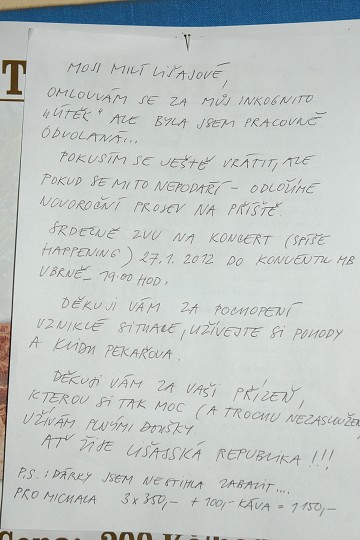 MOJI MILÍ LIŠAJOVÉ,
OMLOUVÁM SE ZA MŮJ INKOGNITO
„ÚTĚK" ALE BYLA JSEM PRACOVNĚ
ODVOLANÁ...
POKUSÍM SE JEŠTĚ VRÁTIT, ALE
POKUD SE MI TO NEPODAŘÍ – ODLOŽÍME
NOVOROČNÍ PROSEV NA PŘÍŠTĚ.
SRDEČNĚ ZVU NA KONCERT (SPÍŠE
HAPPENING) 27.1. 2012 DO KONVENTU MB
V BRNĚ – 19.00 HOD.
DĚKUJI VÁM ZA POCHOPENÍ
VZNIKLÉ SITUACE, UŽÍVEJTE SI POHODY
A KLIDU PEKAŘOVA.
DĚKUJI VÁM ZA VAŠI PŘÍZEŇ,
KTEROU SI TAK MOC (A TROCHU NEZASLOUŽEN
UŽÍVÁM PLNÝMI DOUŠKY
AŤ ŽIJE LIŠAJSKÁ REPUBLIKA!!!
P.S.: DÁRKY JSEM NESTIHLA ZABALIT....
PRO MICHALA 3x350,- + 100,- KÁVA = 1150,-